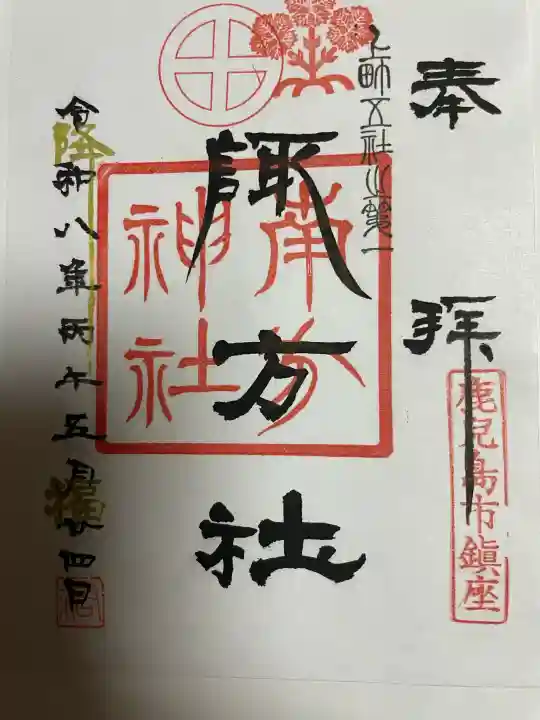 奉拝
鹿兒島市鎮座
上町五社之第一
諏方社
南方神社
降福
令和八年丙午五月廿四日